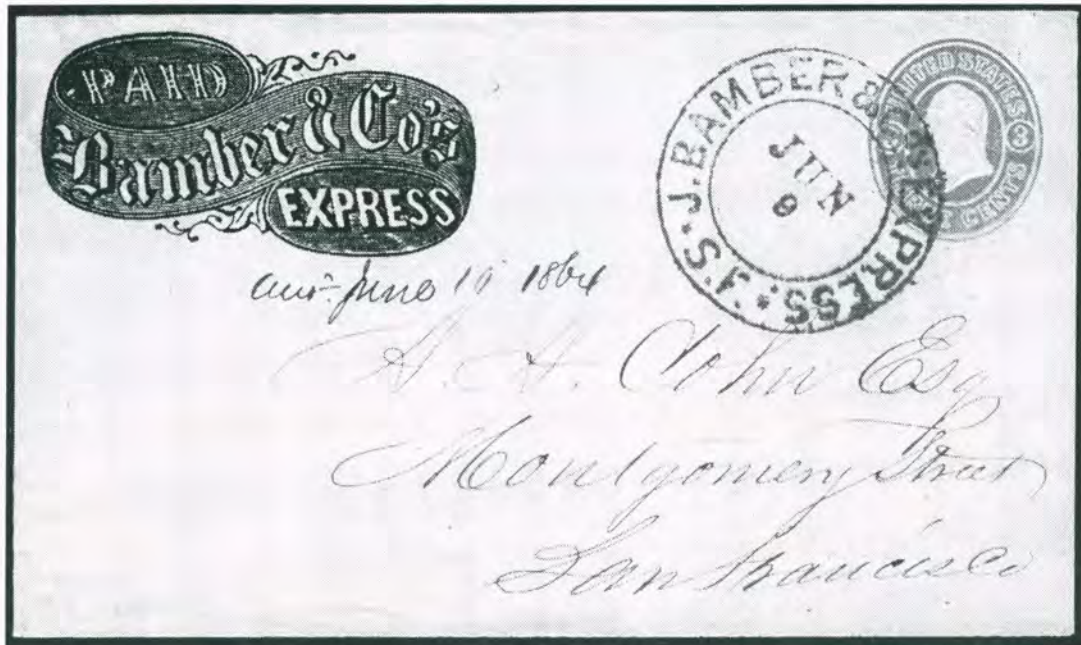 PAID
Bamber & Co's
EXPRESS
J.S. J. BAMBER & CO'S EXPRESS.
JUN
9
UNITED STATES
3 CENTS
June 1864
A. A. Cohn Esq
Montgomery Street
San Francisco